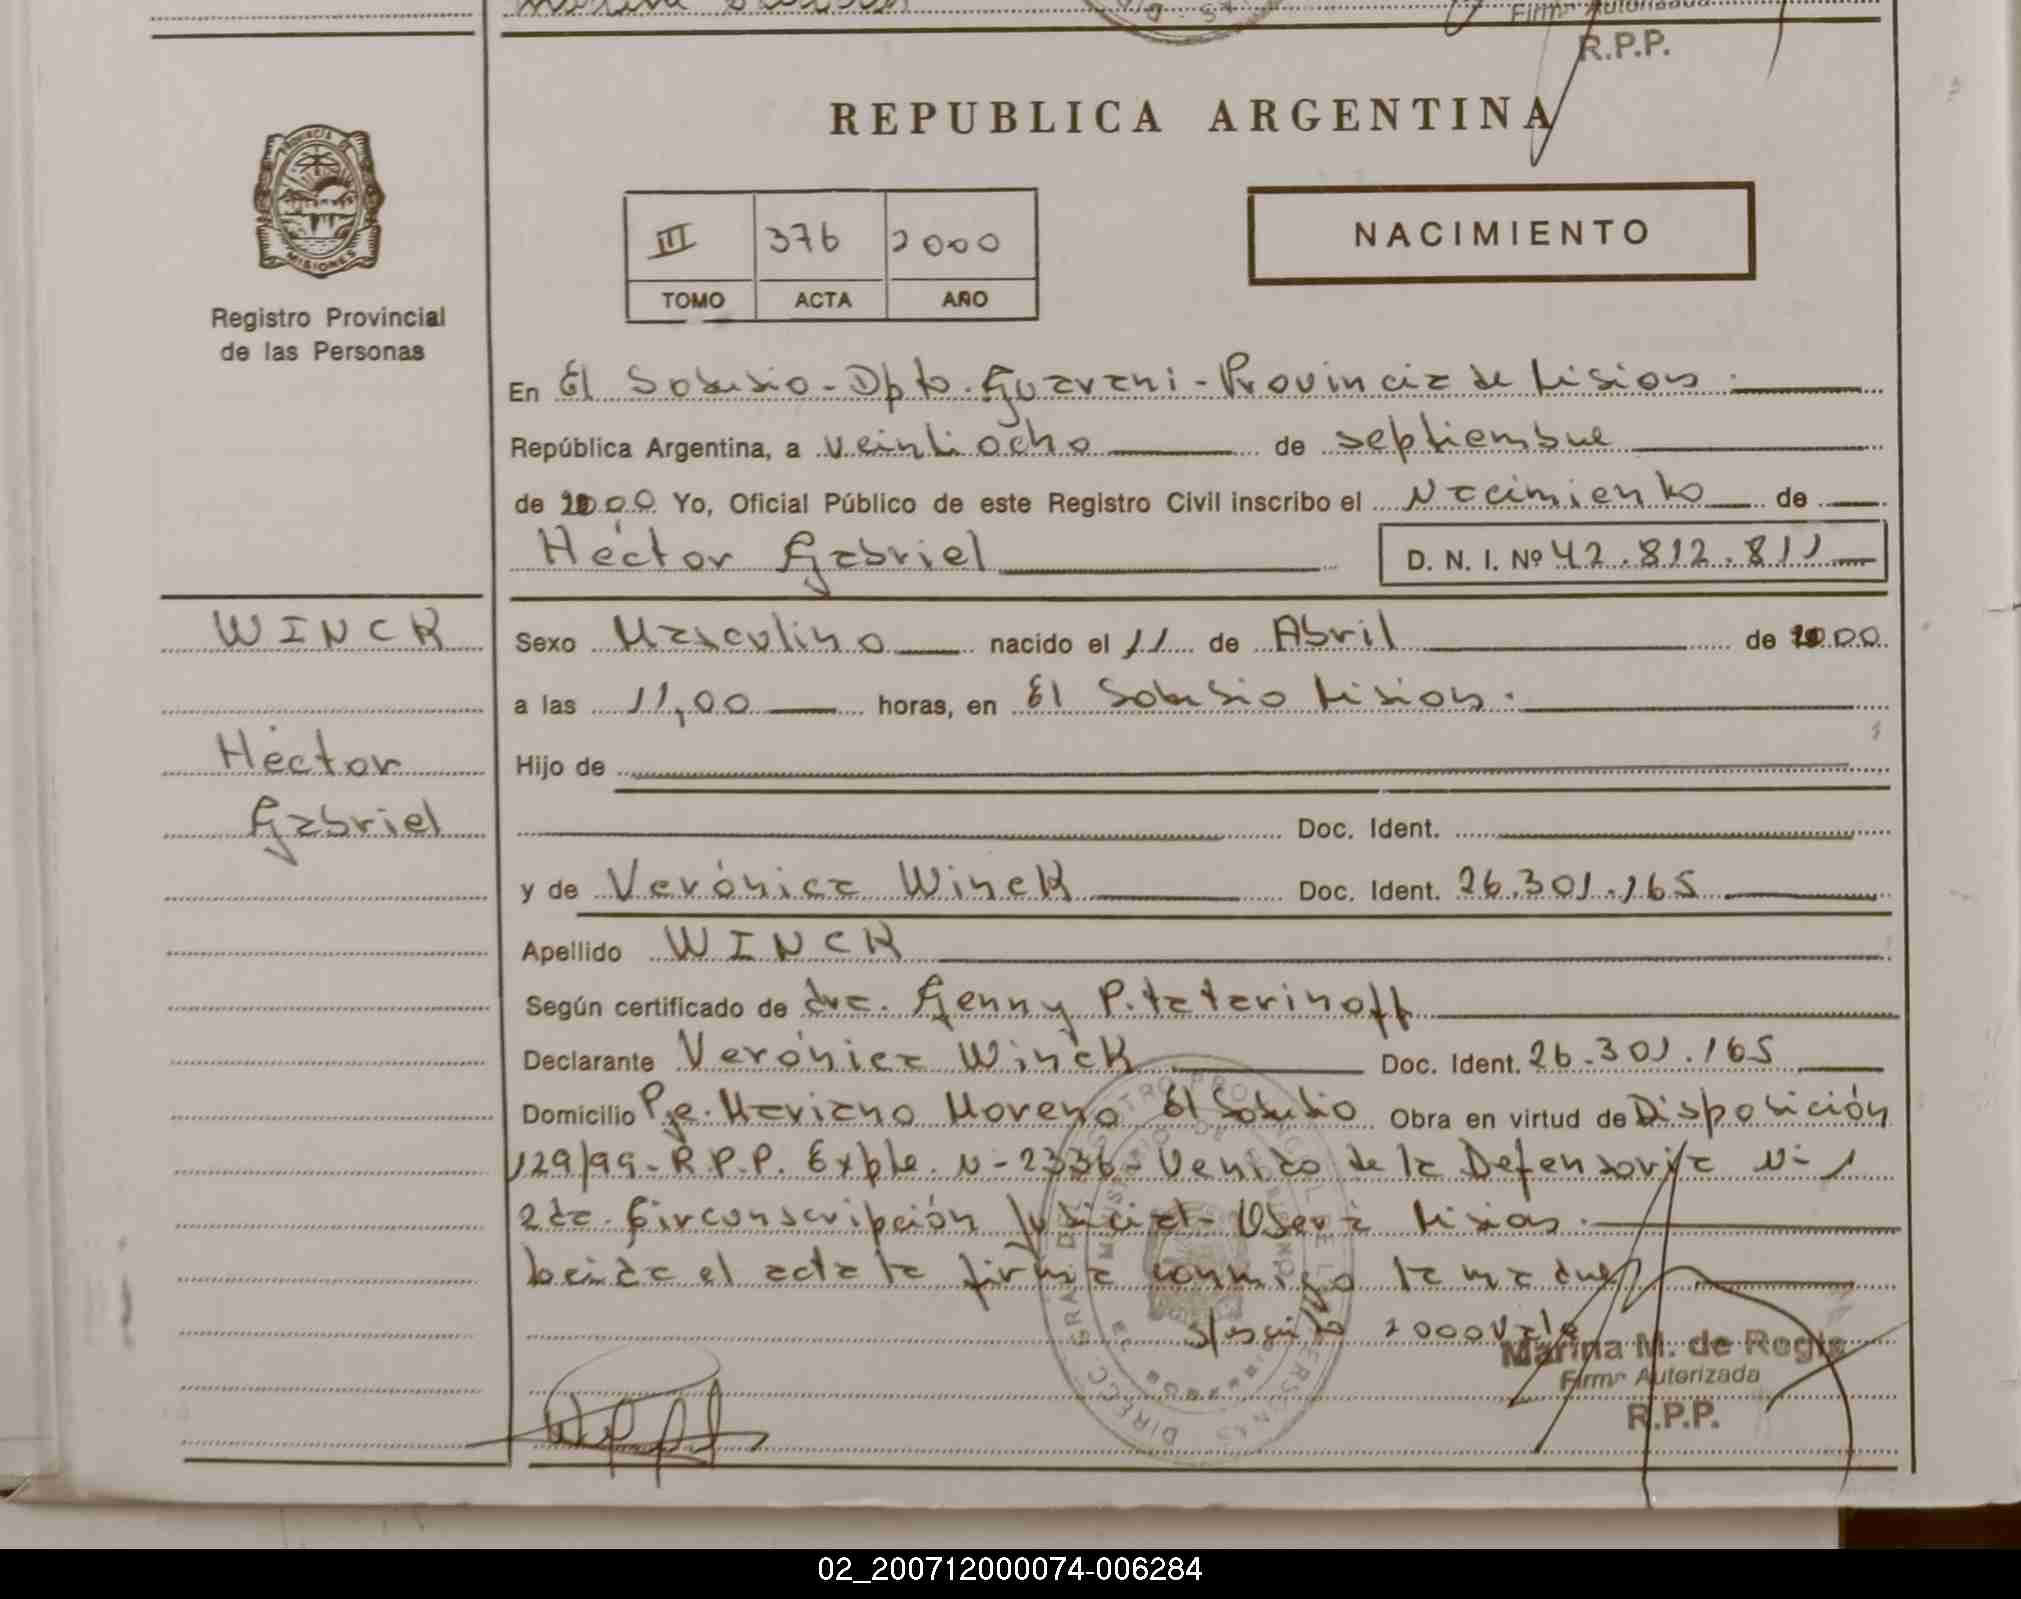 Firmª Autorizada
R.P.P.
REPUBLICA ARGENTINA
PROVINCIA DE
MISIONES
Registro Provincial
de las Personas
III 376 2000
TOMO ACTA AÑO
NACIMIENTO
En El Soberbio - Dpto. Guarani - Provincia de Misiones.
República Argentina, a veintiocho de septiembre
de 2000 Yo, Oficial Público de este Registro Civil inscribo el Nacimiento de
Héctor Gabriel D. N. I. Nº 42.812.811
WINCK
Sexo Masculino nacido el 11 de Abril de 2000
a las 11,00 horas, en El Soberbio Misiones.
Héctor
Hijo de
Gabriel
Doc. Ident.
y de Verónica Winck Doc. Ident. 26.301.165
Apellido WINCK
Según certificado de dra. Genny P. Tatarinoff
Declarante Verónica Winck Doc. Ident. 26.301.165
Domicilio Pje. Mariano Moreno El Soberbio Obra en virtud de Disposición
129/99 - R.P.P. Expte. N- 2336 - Venido de la Defensoría N- 1
2da. Circonscripción Judicial - Oberá Misiones.
Leída el acta la firma conmigo la madre
s/escrito 2000 Vale
Marina M. de Regis
Firmª Autorizada
R.P.P.
02_200712000074-006284